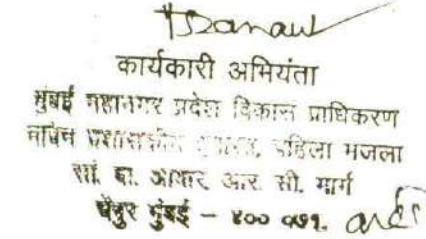 कार्यकारी अभियंता
मुंबई महानगर प्रदेश विकास प्राधिकरण
नविन प्रशासकीय इमारत, पहिला मजला
सां. बा. आवार आर. सी. मार्ग
चेंबुर मुंबई - ४०० ०७१.